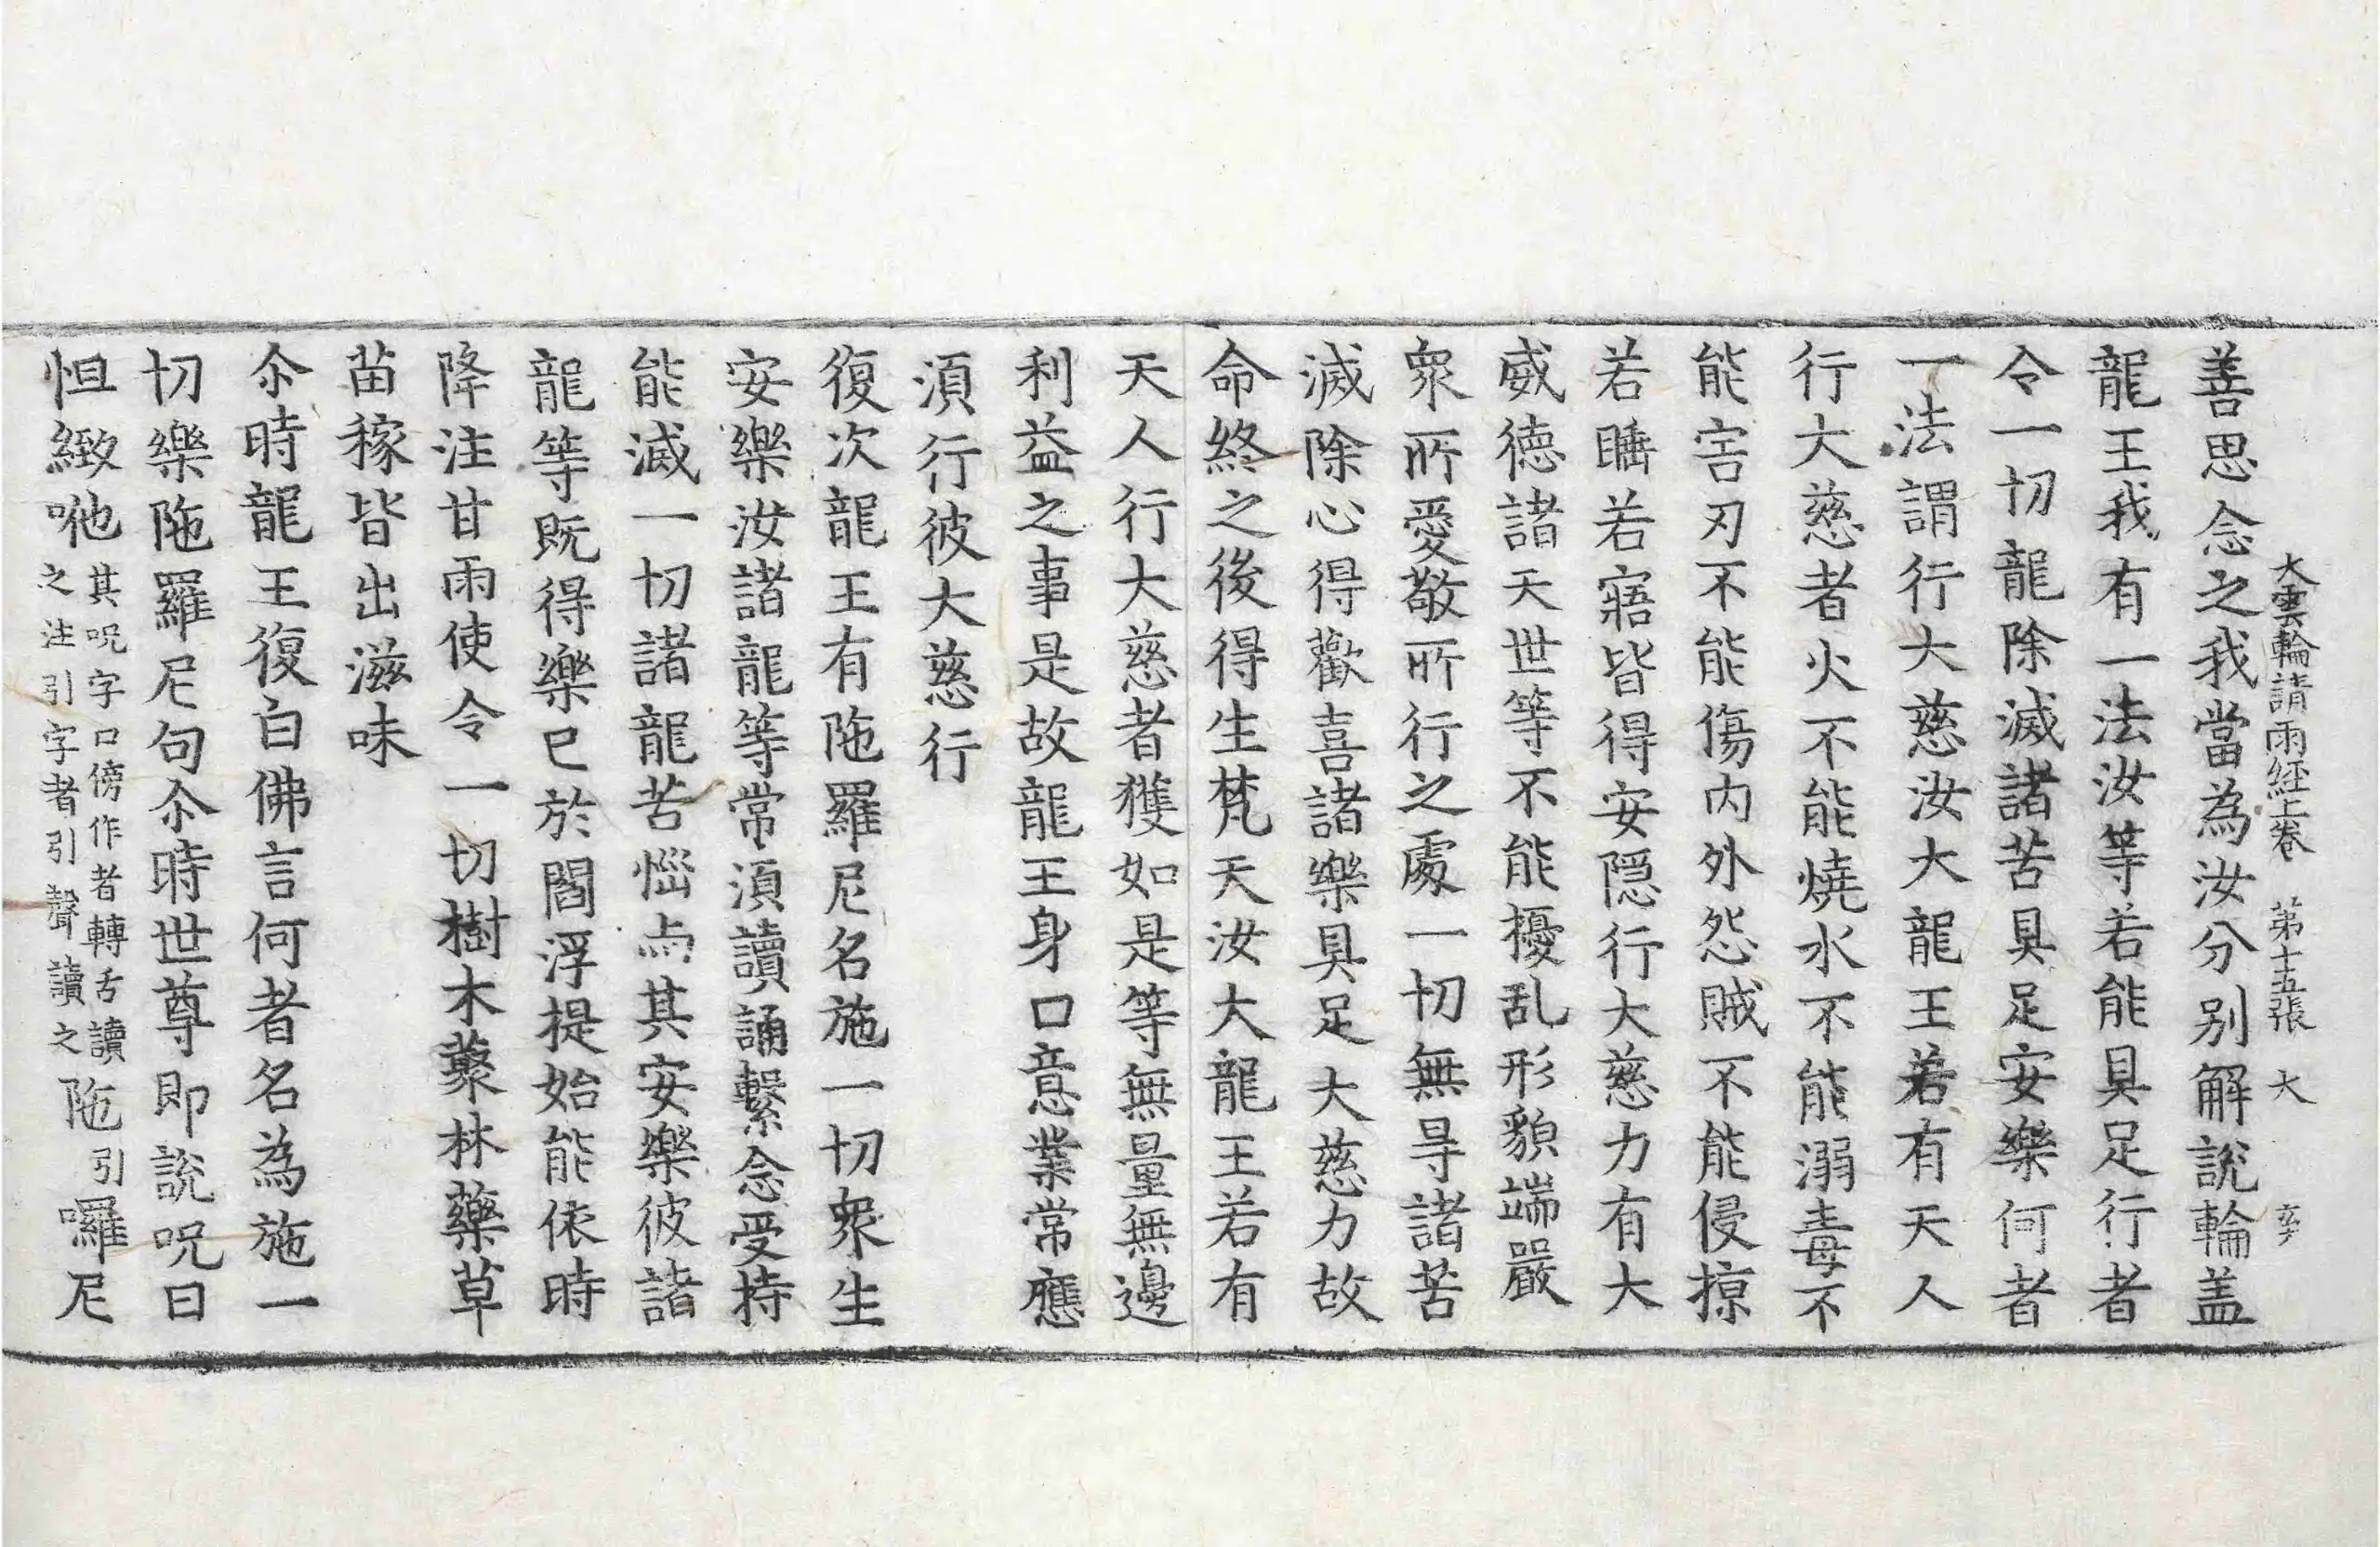 大雲輪請雨經上卷 第十五張 大
善思念之我當為汝分別解說輪盖
龍王我有一法汝等若能具足行者
令一切龍除滅諸苦具足安樂何者
一法謂行大慈汝大龍王若有天人
行大慈者火不能燒水不能溺毒不
能害刃不能傷內外怨賊不能侵掠
若睡若寤皆得安隱行大慈力有大
威德諸天世等不能擾乱形貌端嚴
眾所愛敬所行之處一切無㝵諸苦
滅除心得歡喜諸樂具足大慈力故
命終之後得生梵天汝大龍王若有
天人行大慈者獲如是等無量無邊
利益之事是故龍王身口意業常應
湏行彼大慈行
復次龍王有陁羅尼名施一切眾生
安樂汝諸龍等常湏讀誦繫念受持
能滅一切諸龍苦惱与其安樂彼諸
龍等既得樂已於閻浮提始能依時
降注甘雨使令一切樹木藂林藥草
苗稼皆出滋味
尒時龍王復白佛言何者名為施一
切樂陁羅尼句尒時世尊即說呪曰
怛緻咃其呪字口傍作者轉舌讀之注引字者引聲讀之陁引囉尼